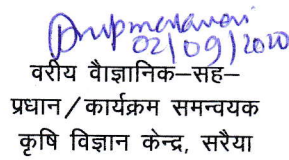 02/09/2020
वरीय वैाज्ञानिक–सह–
प्रधान/कार्यक्रम समन्वयक
कृषि विज्ञान केन्द्र, सरैया